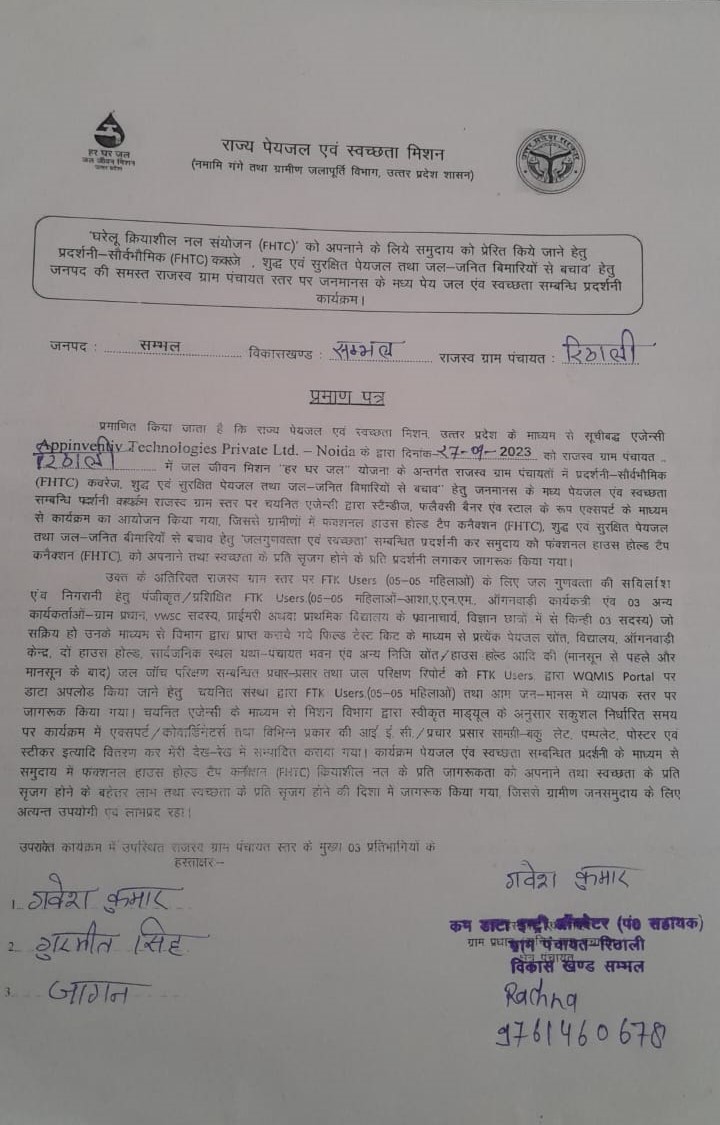 हर घर जल
जल जीवन मिशन
उत्तर प्रदेश
राज्य पेयजल एवं स्वच्छता मिशन
(नमामि गंगे तथा ग्रामीण जलापूर्ति विभाग, उत्तर प्रदेश शासन)
उत्तर प्रदेश सरकार
'घरेलू क्रियाशील नल संयोजन (FHTC)' को अपनाने के लिये समुदाय को प्रेरित किये जाने हेतु
प्रदर्शनी–सौर्वभौमिक (FHTC) कवरेज , शुद्ध एवं सुरक्षित पेयजल तथा जल–जनित बिमारियों से बचाव' हेतु
जनपद की समस्त राजस्व ग्राम पंचायत स्तर पर जनमानस के मध्य पेय जल एंव स्वच्छता सम्बन्धि प्रदर्शनी
कार्यक्रम।
जनपद : सम्भल विकासखण्ड : सम्भल राजस्व ग्राम पंचायत : रिठाली
प्रमाण पत्र
प्रमाणित किया जाता है कि राज्य पेयजल एवं स्वच्छता मिशन, उत्तर प्रदेश के माध्यम से सूचीबद्ध एजेन्सी
Appinventiv Technologies Private Ltd. – Noida के द्वारा दिनांक 27-09-2023 को राजस्व ग्राम पंचायत ..
रिठाली में जल जीवन मिशन "हर घर जल" योजना के अन्तर्गत राजस्व ग्राम पंचायतों में प्रदर्शनी–सौर्वभौमिक
(FHTC) कवरेज, शुद्ध एवं सुरक्षित पेयजल तथा जल–जनित बिमारियों से बचाव" हेतु जनमानस के मध्य पेयजल एंव स्वच्छता
सम्बन्धि राजस्व ग्राम स्तर पर चयनित एजेन्सी द्वारा स्टैन्डीज, फलैक्सी बैनर एंव स्टाल के रूप एक्सपर्ट के माध्यम
से कार्यक्रम का आयोजन किया गया, जिससे ग्रामीणों में फक्शनल हाउस होल्ड टैप कनैक्शन (FHTC), शुद्ध एवं सुरक्षित पेयजल
तथा जल–जनित बीमारियों से बचाव हेतु 'जलगुणवत्ता एंव स्वच्छता' सम्बन्धित प्रदर्शनी कर समुदाय को फंक्शनल हाउस होल्ड टैप
कनैक्शन (FHTC), को अपनाने तथा स्वच्छता के प्रति सृजग होने के प्रति प्रदर्शनी लगाकर जागरूक किया गया।
उक्त के अतिरियत राजस्व ग्राम स्तर पर FTK Users (05–05 महिलाओं) के लिए जल गुणवत्ता की सर्विलांश
एंव निगरानी हेतु पंजीकृत/प्रशिक्षित FTK Users.(05–05 महिलाओं–आशा,ए.एन.एम., ऑगनवाडी कार्यकत्री एंव 03 अन्य
कार्यकर्ताओं–ग्राम प्रधान, vwsc सदस्य, प्राईमरी अथवा प्राथमिक विद्यालय के प्रधानाचार्य, विज्ञान छात्रों में से किन्ही 03 सदस्य) जो
सक्रिय हो उनके माध्यम से विभाग द्वारा प्राप्त कराये गये फिल्ड टैस्ट किट के माध्यम से प्रत्येक पेयजल स्रोत, विद्यालय, ऑगनवाडी
केन्द्र, दो हाउस होल्ड, सार्वजनिक स्थल यथा–पंचायत भवन एंव अन्य निजि स्रोत/हाउस होल्ड आदि की (मानसून से पहले और
मानसून के बाद) जल जॉच परिक्षण सम्बन्धित प्रचार–प्रसार तथा जल परिक्षण रिपोर्ट को FTK Users. द्वारा WQMIS Portal पर
डाटा अपलोड किया जाने हेतु चयनित संस्था द्वारा FTK Users.(05–05 महिलाओं) तथा आम जन–मानस में व्यापक स्तर पर
जागरूक किया गया। चयनित एजेन्सी के माध्यम से मिशन विभाग द्वारा स्वीकृत माड्यूल के अनुसार सकुशल निर्धारित समय
पर कार्यक्रम में एक्सपर्ट/कोवार्डिनेटर्स तथा विभिन्न प्रकार की आई. ई. सी./प्रचार प्रसार सामग्री–बकु लेट, पम्पलेट, पोस्टर एवं
स्टीकर इत्यादि वितरण कर मेरी देख–रेख में सम्पादित कराया गया। कार्यक्रम पेयजल एंव स्वच्छता सम्बन्धित प्रदर्शनी के माध्यम से
समुदाय में फक्शनल हाउस होल्ड टैप कनैक्शन (FHTC) कियाशील नल के प्रति जागरूकता को अपनाने तथा स्वच्छता के प्रति
सृजग होने के बेहतर लाभ तथा स्वच्छता के प्रति सृजग होने की दिशा में जागरूक किया गया, जिससे ग्रामीण जनसमुदाय के लिए
अत्यन्त उपयोगी एवं लाभप्रद रहा।
उपरोक्त कार्यक्रम में उपस्थित राजस्व ग्राम पंचायत स्तर के मुख्य 03 प्रतिभागियों के
हस्ताक्षर:–
1. गवेश कुमार
2. गुरमीत सिंह
3. जागन
गवेश कुमार
कम डाटा इन्ट्री ऑपरेटर (पं0 सहायक)
ग्राम पंचायत–रिठाली
विकास खण्ड सम्भल
Rachna
9761460678